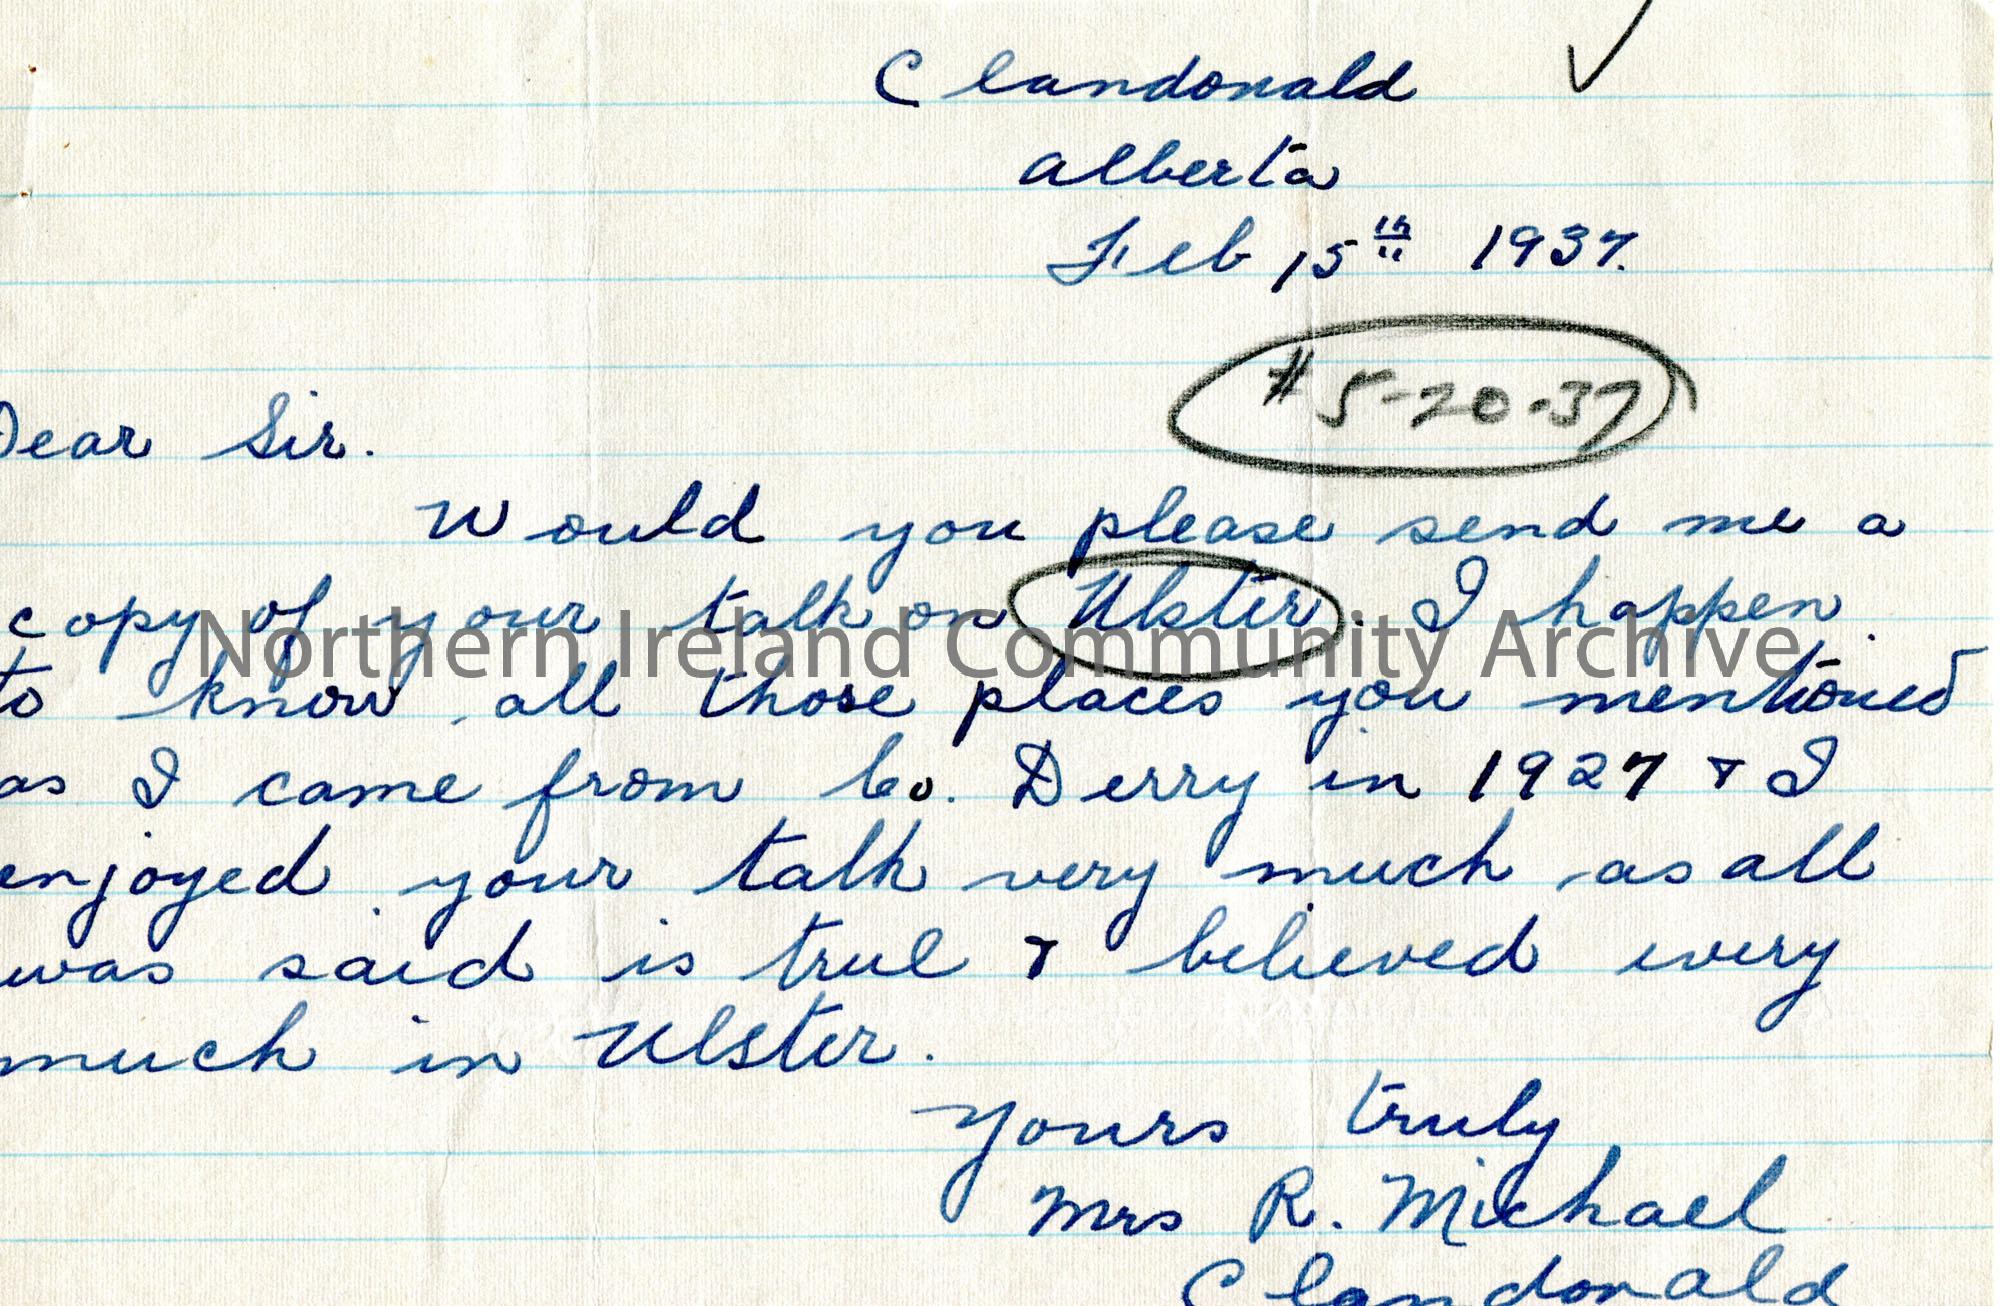 Clandonald
alberta
Feb 15th 1937.
# 5-20-37
Dear Sir.
Would you please send me a
copy of your talk on Ulster. I happen
to know all those places you mentioned
as I came from Co. Derry in 1927 & I
enjoyed your talk very much as all
was said is true & believed every
much in Ulster.
Yours truly
Mrs R. Michael
Clandonald
Northern Ireland Community Archive